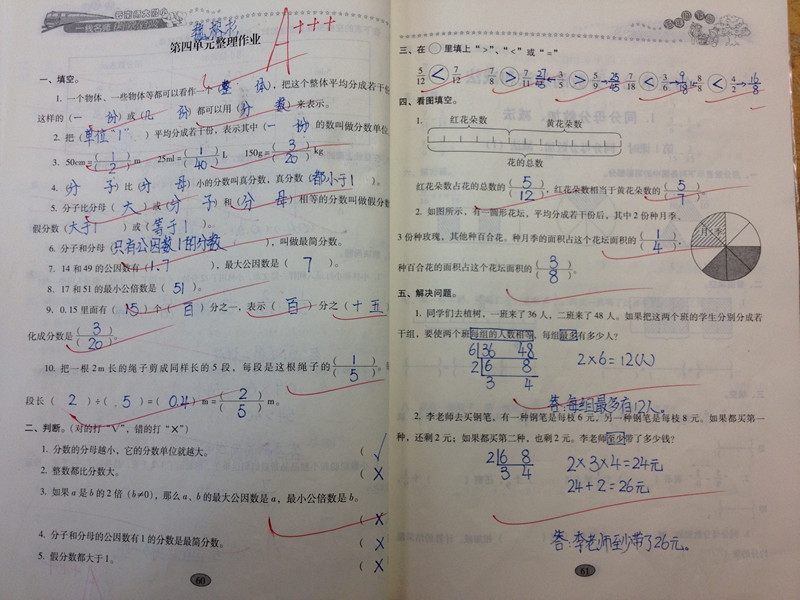 第四单元整理作业
A+++
一、填空。
1. 一个物体、一些物体等都可以看作一个(整 体),把这个整体平均分成若干份,
这样的(一 份)或(几 份)都可以用(分 数)来表示。
2. 把(单位"1" )平均分成若干份,表示其中(一 份)的数叫做分数单位。
3. 50cm=(1/2)m 25ml=(1/40)L 150g=(3/20)kg
4. (分 子)比(分 母)小的分数叫真分数,真分数(都小于1)。
5. 分子比分母(大)或(分 子)和(分 母)相等的分数叫做假分数,
假分数(大于1)或(等于1)。
6. 分子和分母(只有公因数1的分数),叫做最简分数。
7. 14和49的公因数有(1.7 ),最大公因数是(7)。
8. 17和51的最小公倍数是(51)。
9. 0.15里面有(15)个(百)分之一,表示(百)分之(十五)
化成分数是(3/20)。
10. 把一根2m长的绳子剪成同样长的5段,每段是这根绳子的(1/5),
段长(2)÷(5)=(0.4)m=(2/5)m。
二、判断。(对的打"√",错的打"×")
1. 分数的分母越小,它的分数单位就越大。 (√
2. 整数都比分数大。 (×
3. 如果a是b的2倍(b≠0),那么a、b的最大公因数是a,最小公倍数是b。
(×
4. 分子和分母的公因数有1的分数是最简分数。 (×
5. 假分数都大于1。 (×
60
三、在○里填上">"、"<"或"="
5/12 < 7/12 7/8 > 7/11 3/5 > 5/9 7/18 < 3/6 8/8 < 4/2
四、看图填空。
1. 红花朵数 黄花朵数
花的总数
红花朵数占花的总数的(5/12),红花朵数相当于黄花朵数的(5/7)。
2. 如图所示,有一圆形花坛,平均分成若干份后,其中2份种月季,
3份种玫瑰,其他种百合花。种月季的面积占这个花坛面积的(1/4),
月季
种百合花的面积占这个花坛面积的(3/8)。
五、解决问题。
1. 同学们去植树,一班来了36人,二班来了48人。如果把这两个班的学生分别分成若
干组,要使两个班每组的人数相等,每组最多有多少人?
6 36 48
2 6 8
3 4
2×6=12(人)
答:每组最多有12人。
2. 李老师去买钢笔,有一种钢笔是每枝6元,另一种钢笔是每枝8元。如果都买第一
种,还剩2元;如果都买第二种,也剩2元。李老师至少带了多少钱?
2 6 8
3 4
2×3×4=24元
24+2=26元
答:李老师至少带了26元。
61